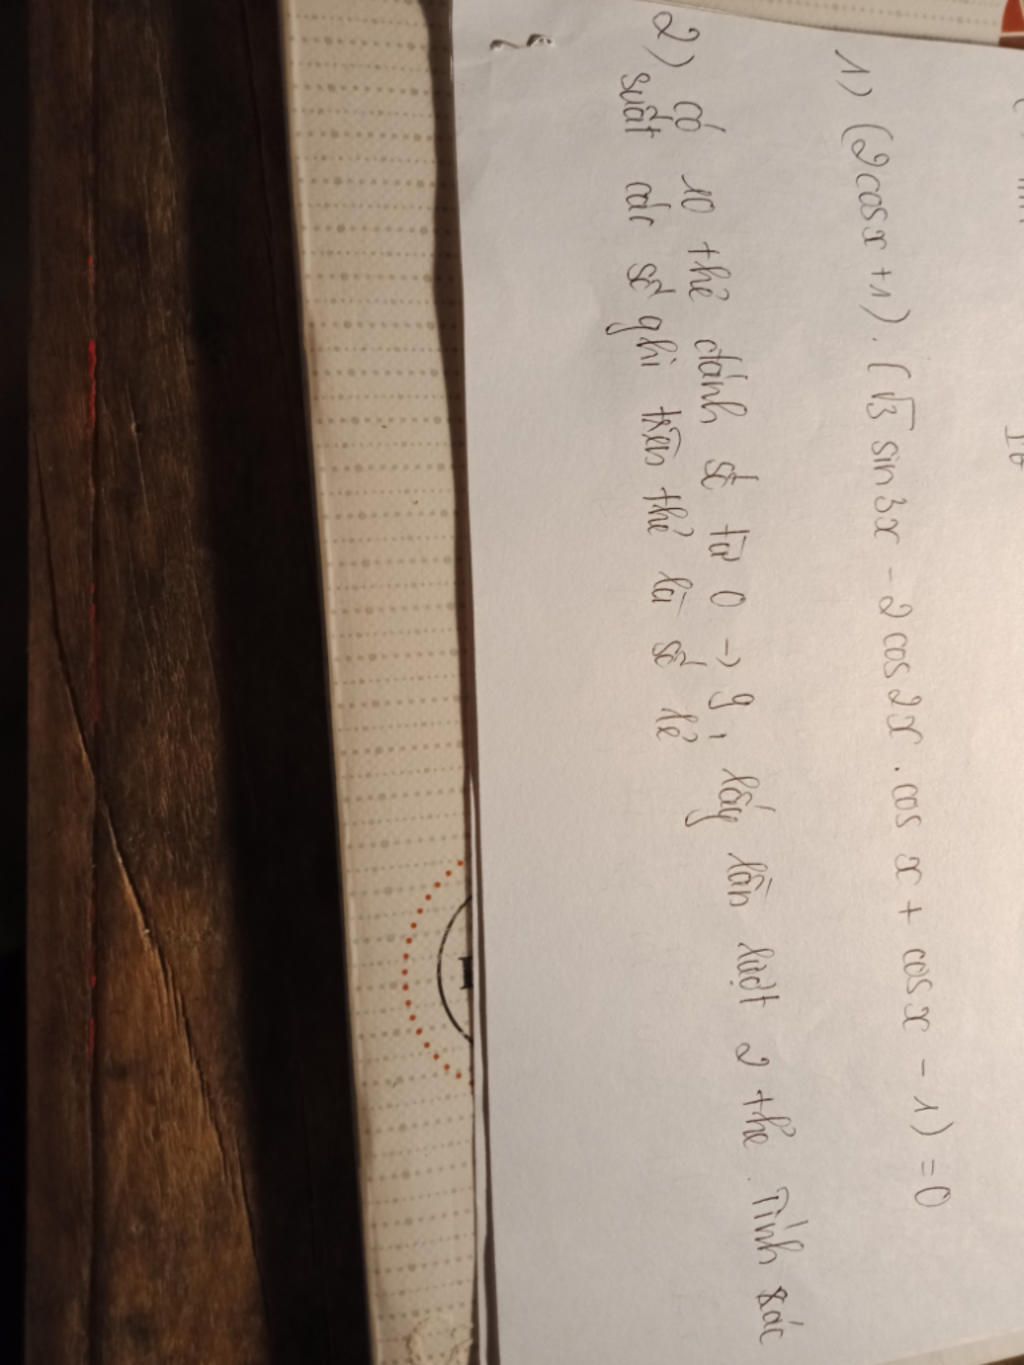 1) (2cosx+1).(√3 sin3x - 2cos2x.cosx + cosx - 1) = 0
2) có 10 thẻ đánh số từ 0 → 9, lấy lần lượt 2 thẻ. Tính xác
suất các số ghi trên thẻ là số lẻ